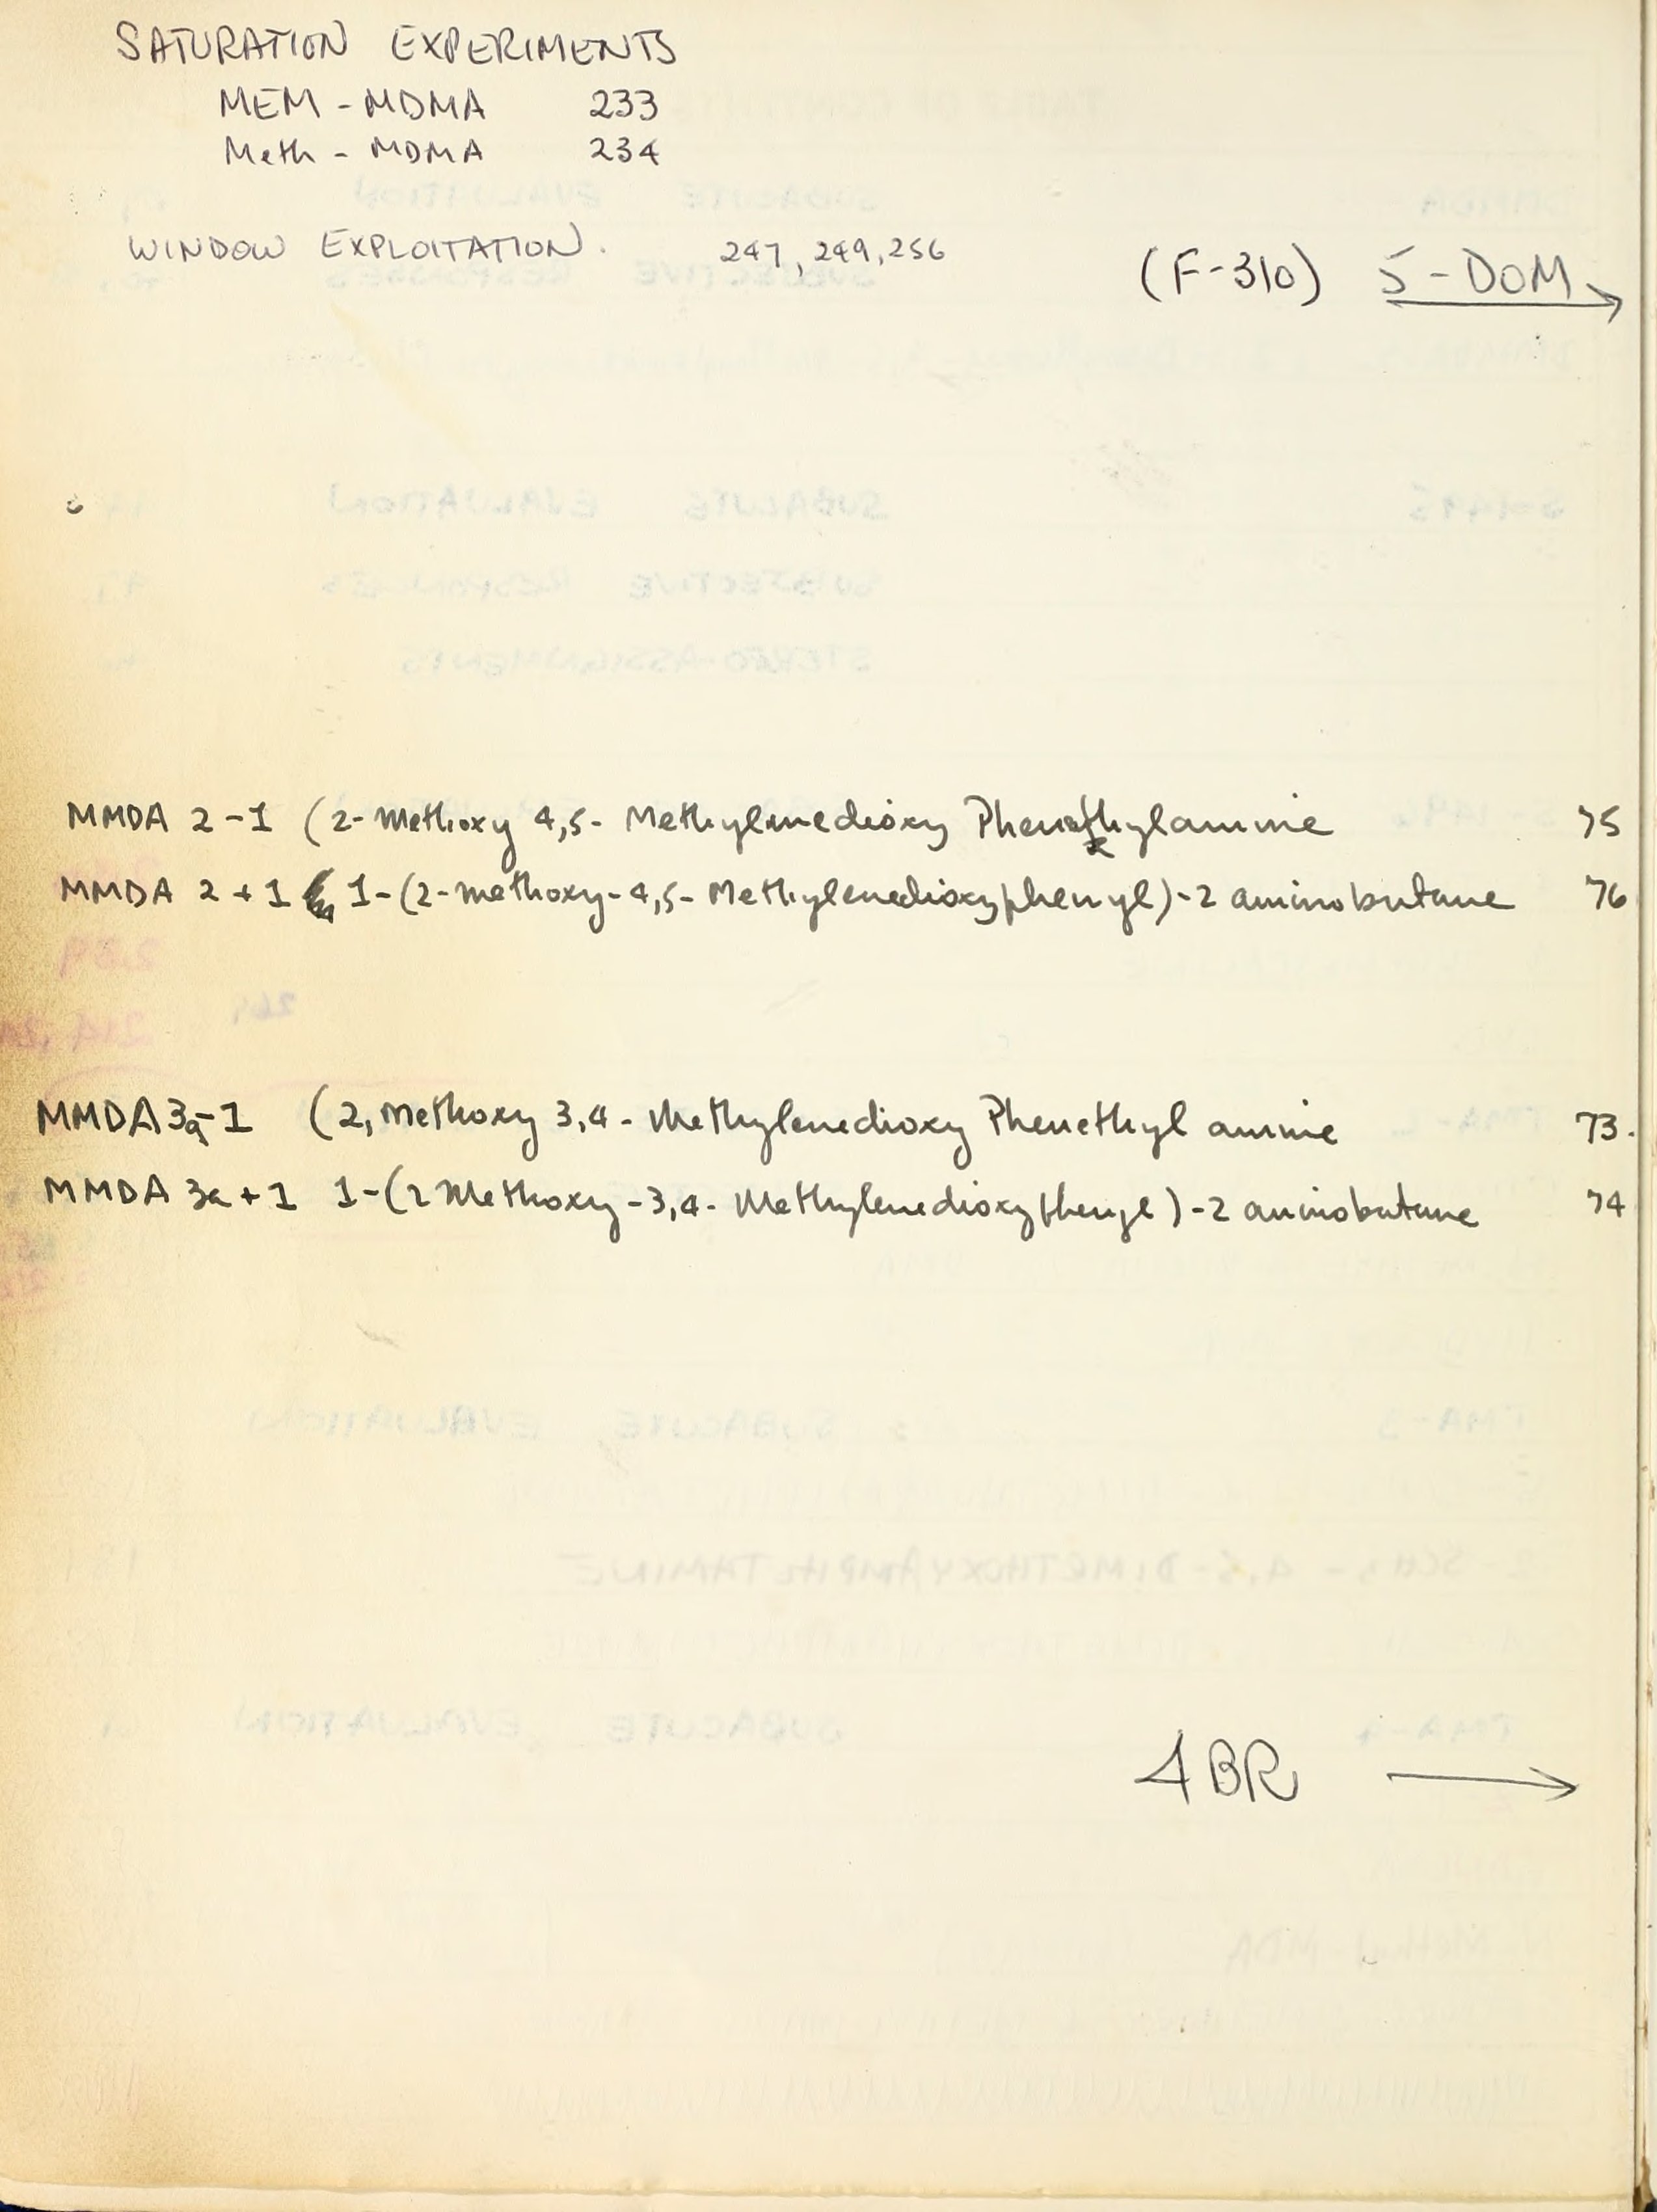 SATURATION EXPERIMENTS
MEM - MDMA 233
Meth - MDMA 234
WINDOW EXPLOITATION. 247, 249, 256
(F-310) 5-DOM →
MMDA 2-1 (2-Methoxy 4,5- Methylenedioxy Phenethylamine 75
MMDA 2+1 1-(2-methoxy-4,5-Methylenedioxyphenyl)-2 aminobutane 76
MMDA 3a-1 (2, Methoxy 3,4- Methylenedioxy Phenethyl amine 73.
MMDA 3a+1 1-(2 Methoxy-3,4- Methylenedioxyphenyl)-2 aminobutane 74
4 BR →